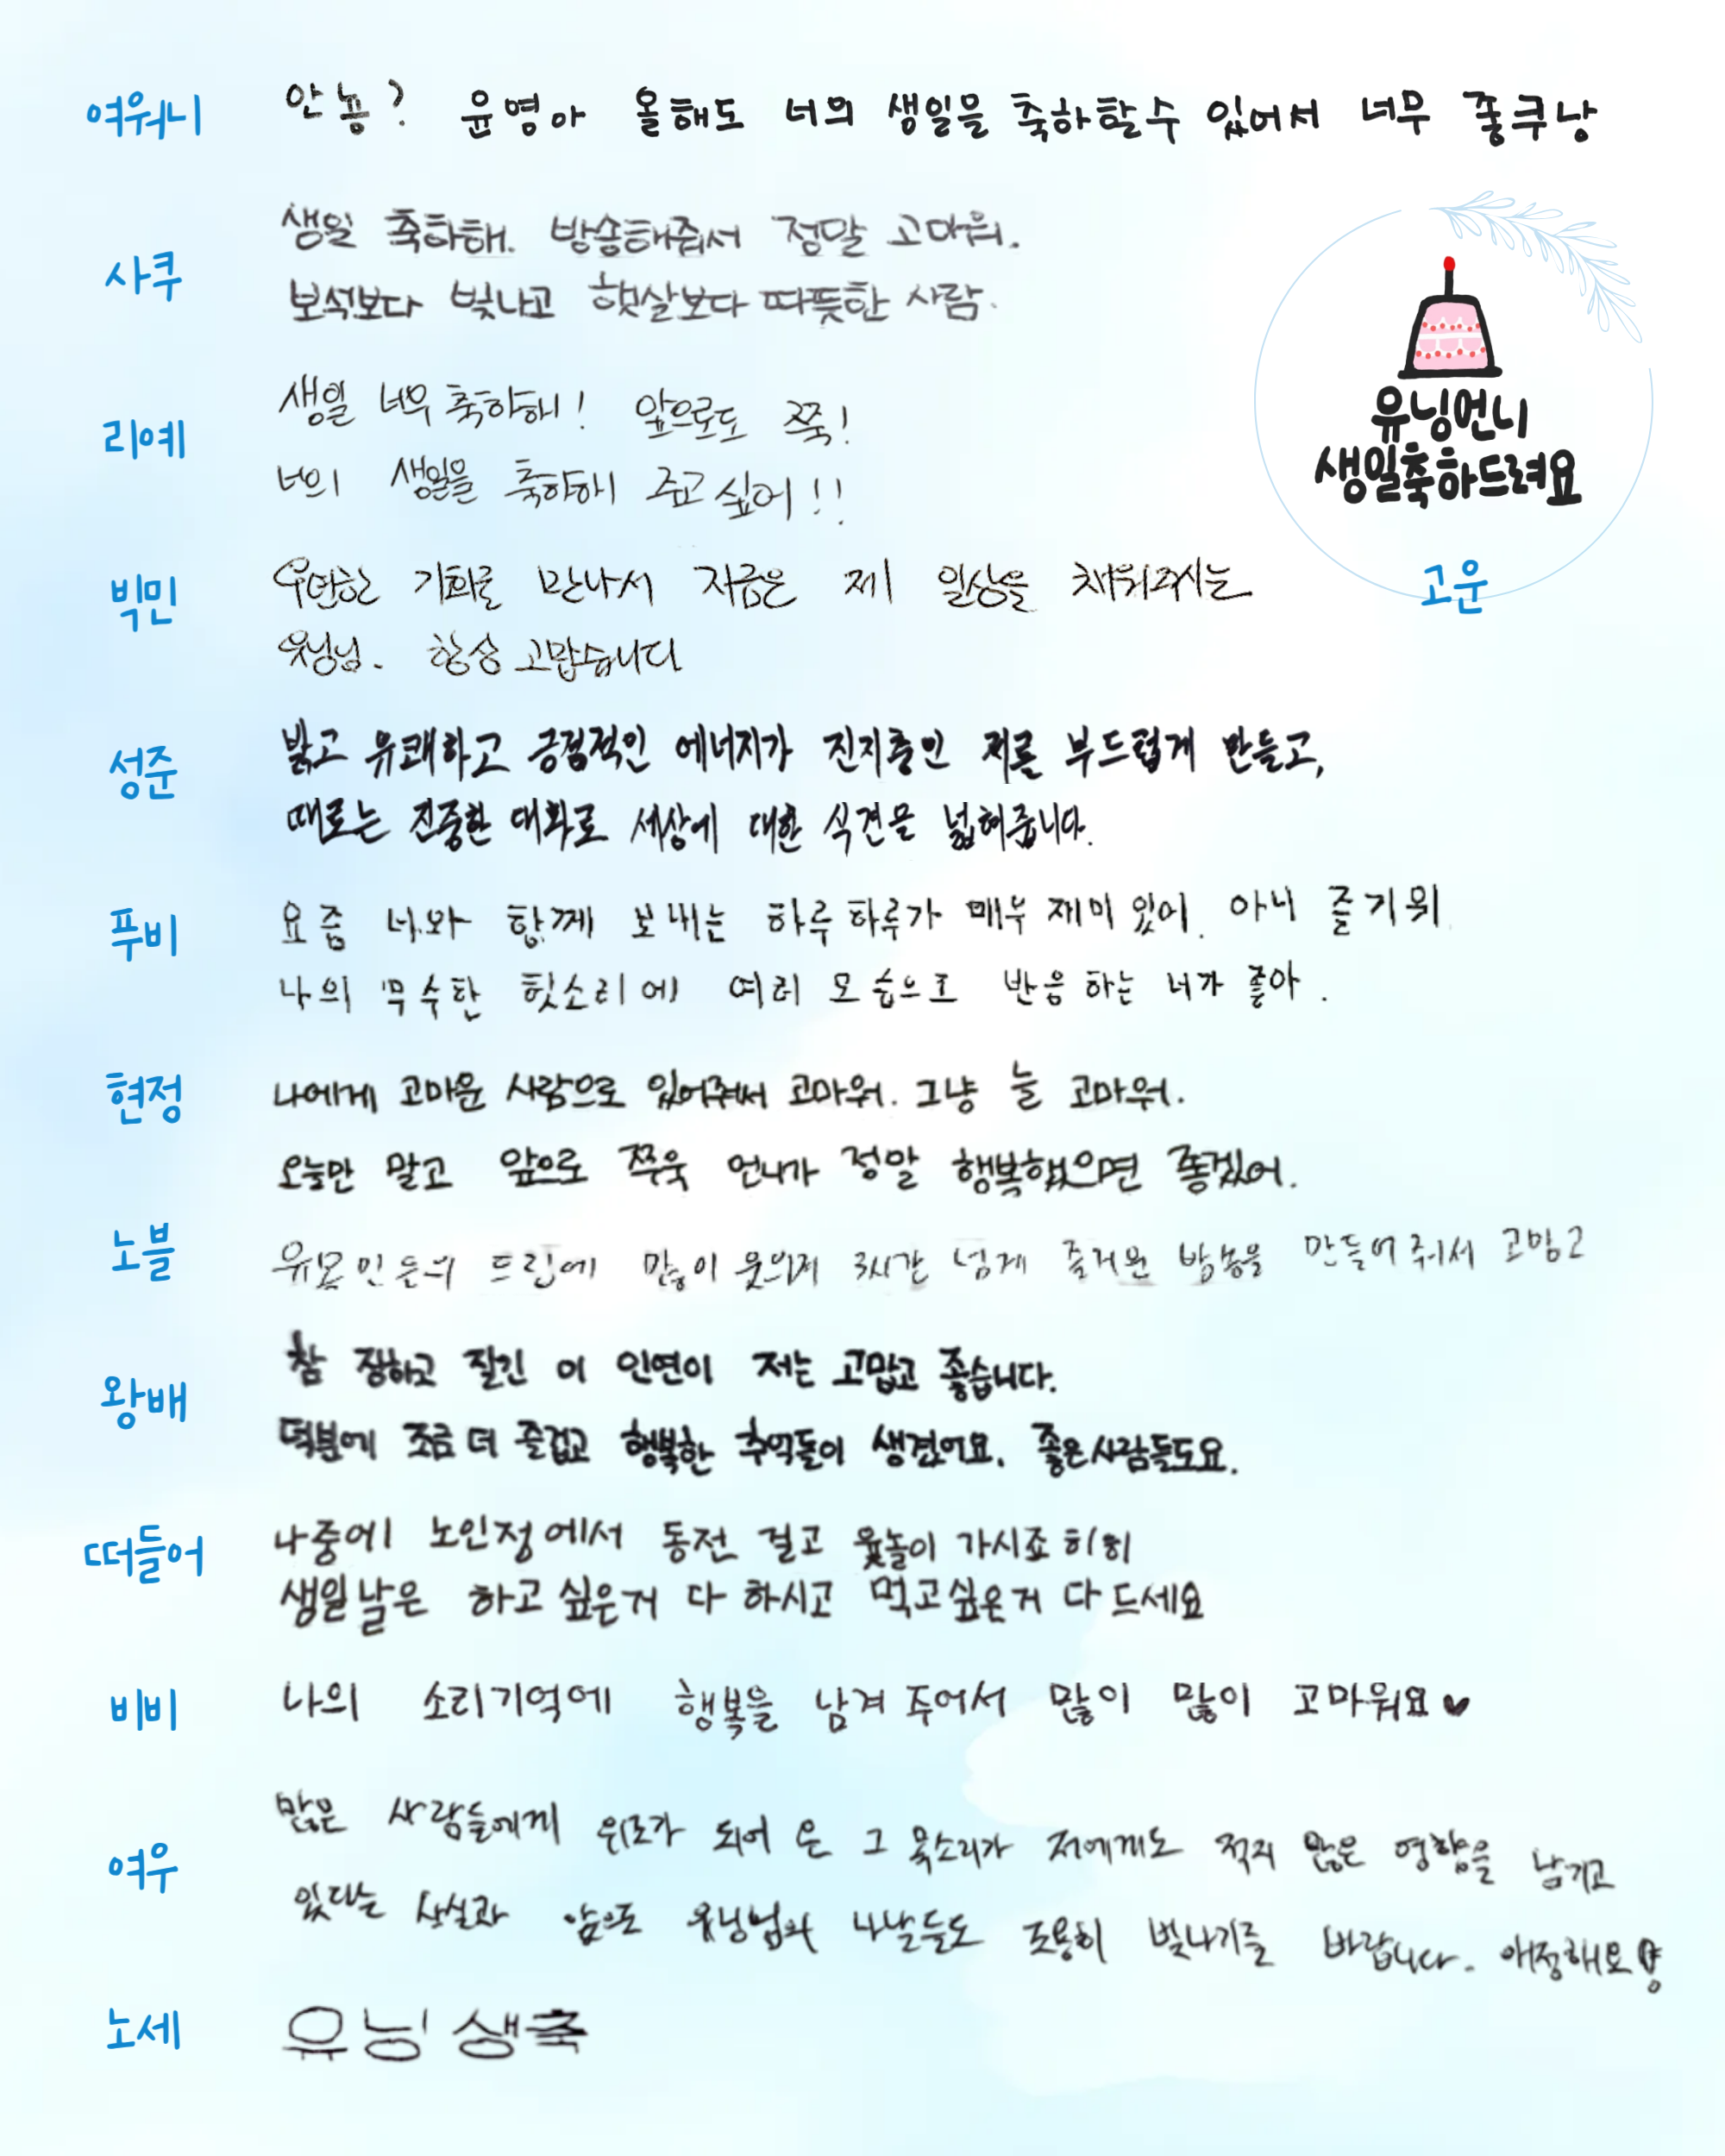 여워니
안뇽? 윤영아 올해도 너의 생일을 축하할수 있어서 너무 좋쿠낭
사쿠
생일 축하해. 방송해줘서 정말 고마워.
보석보다 빛나고 햇살보다 따뜻한 사람.
유닝언니
생일축하드려요
고운
리예
생일 너무 축하해! 앞으로도 쭉!
너의 생일을 축하해 주고 싶어!!
빅민
우연한 기회로 만나서 지금은 제 일상을 채워주시는
윳닝님. 항상 고맙습니다
성준
밝고 유쾌하고 긍정적인 에너지가 진지충인 저를 부드럽게 만들고,
때로는 진중한 대화로 세상에 대한 식견을 넓혀줍니다.
푸비
요즘 너와 함께 보내는 하루하루가 매우 재미있어. 아니 즐거워
나의 무수한 헛소리에 여러 모습으로 반응하는 너가 좋아.
현정
나에게 고마운 사람으로 있어줘서 고마워. 그냥 늘 고마워.
오늘만 말고 앞으로 쭈욱 언니가 정말 행복했으면 좋겠어.
노블
드립에 많이 웃으며 3시간 넘게 즐거운 방송을 만들어줘서 고맘고
왕배
참 장하고 질긴 이 인연이 저는 고맙고 좋습니다.
덕분에 조금 더 즐겁고 행복한 추억들이 생겼어요. 좋은사람들도요.
떠들어
나중에 노인정에서 동전 걸고 윷놀이 가시죠 히히
생일날은 하고싶은거 다 하시고 먹고싶은거 다 드세요
비비
나의 소리기억에 행복을 남겨주어서 많이 많이 고마워요♥
여우
많은 사람들에게 위로가 되어 온 그 목소리가 저에게도 적지 않은 영향을 남기고
있다는 사실과 앞으로 윳닝님의 나날들도 조용히 빛나기를 바랍니다. 애정해요
노세
유닝 생축